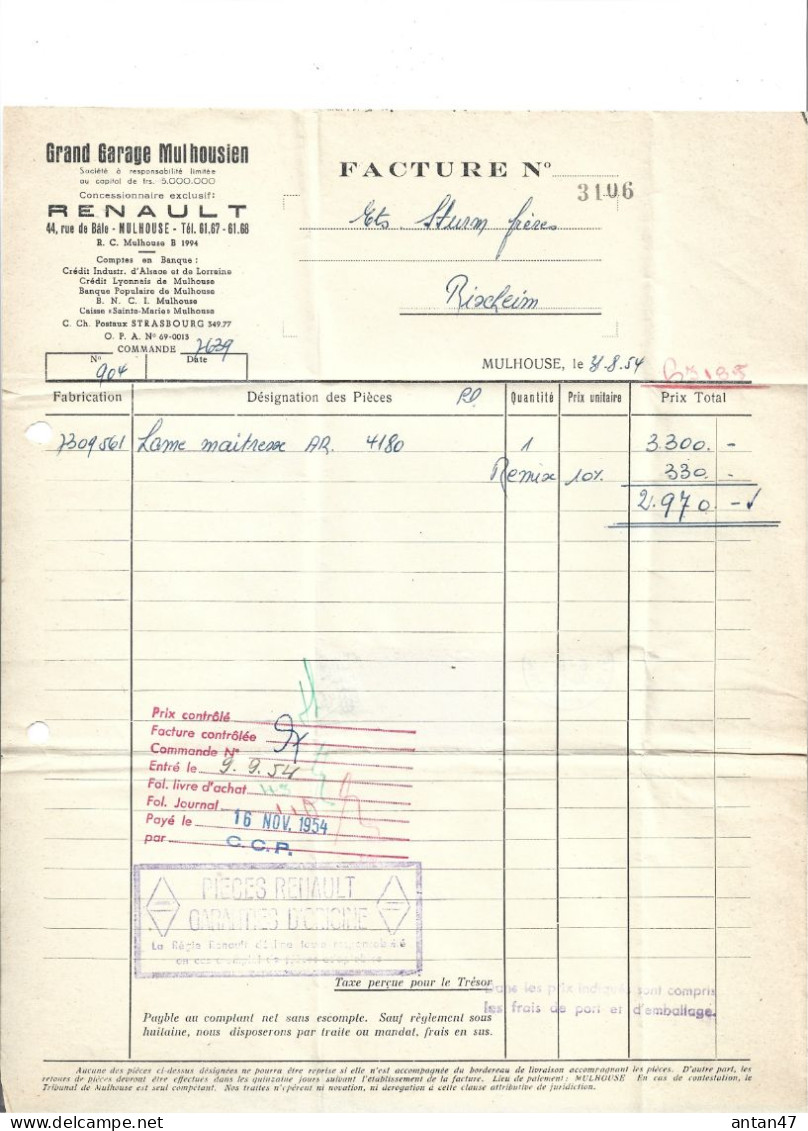 Grand Garage Mulhousien
Société à responsabilité limitée
au capital de frs. 5.000.000
Concessionnaire exclusif:
RENAULT
44, rue de Bâle - MULHOUSE - Tél. 61.67 - 61.68
R. C. Mulhouse B 1994
Comptes en Banque :
Crédit Industr. d'Alsace et de Lorraine
Crédit Lyonnais de Mulhouse
Banque Populaire de Mulhouse
B. N. C. I. Mulhouse
Caisse «Sainte-Marie» Mulhouse
C. Ch. Postaux STRASBOURG 349.77
O. P. A. N° 69-0013
COMMANDE 7639
N° Date
904
FACTURE N°
3106
Ets. Sturm frères
Rixheim
MULHOUSE, le 31.8.54
Fabrication Désignation des Pièces Quantité Prix unitaire Prix Total
7309561 Lame maitresse AR. 4180 1 3.300. -
Remise 10% 330. -
2.970. -
Prix contrôlé
Facture contrôlée
Commande N°
Entré le 9.9.54
Fol. livre d'achat
Fol. Journal
Payé le 16 NOV. 1954
par C.C.P.
PIÈCES RENAULT
GARANTIES D'ORIGINE
La Régie Renault décline toute responsabilité
en cas d'emploi de pièces
Taxe perçue pour le Trésor
Dans les prix indiqués sont compris
les frais de port et d'emballage.
Payable au comptant net sans escompte. Sauf règlement sous
huitaine, nous disposerons par traite ou mandat, frais en sus.
Aucune des pièces ci-dessus désignées ne pourra être reprise si elle n'est accompagnée du bordereau de livraison accompagnant les pièces. D'autre part, les
retours de pièces devront être effectués dans les quinzaine jours suivant l'établissement de la facture. Lieu de paiement : MULHOUSE En cas de contestation, le
Tribunal de Mulhouse est seul compétent. Nos traites n'opèrent ni novation, ni dérogation à cette clause attributive de juridiction.
antan47